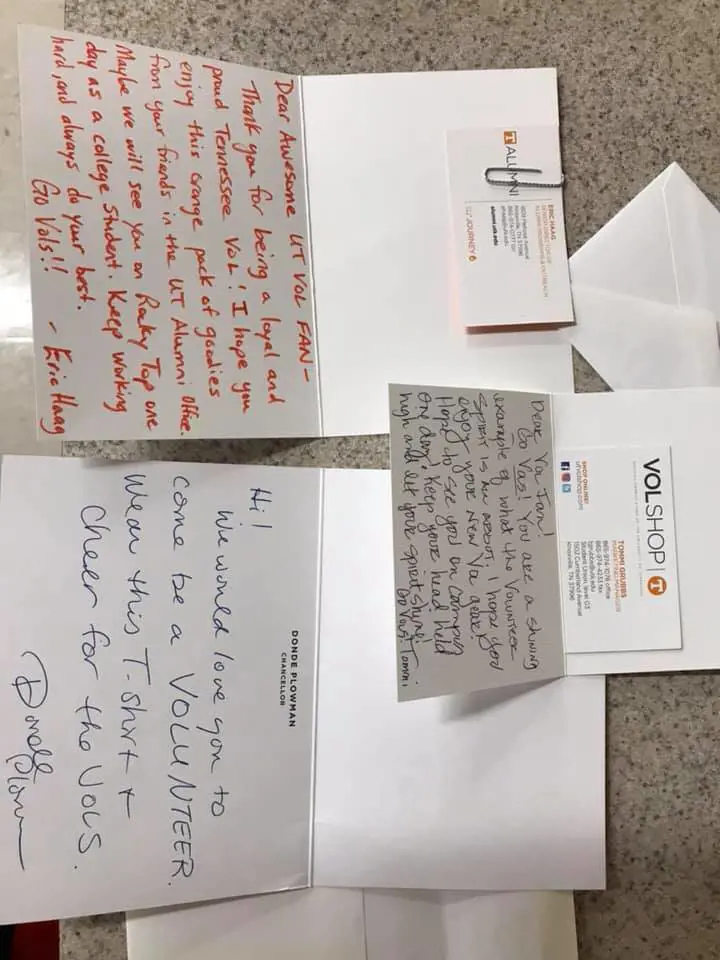 Dear Awesome UT VOL FAN-
Thank you for being a loyal and
proud Tennessee Vol! I hope you
enjoy this orange pack of goodies
from your friends in the UT Alumni Office.
Maybe we will see you on Rocky Top one
day as a college student. Keep working
hard, and always do your best.
Go Vols!!
- Eric Haag
T ALUMNI
ERIC HAAG
alumni.utk.edu
JOURNEY
Dear Vol Fan!
Go Vols! You are a shining
example of what the Volunteer
spirit is all about. I hope you
enjoy your new Vol gear!
Hope to see you on campus
one day! Keep your head held
high and let your spirit shine!
Go Vols! Tommi
VOLSHOP | T
TOMMI GRUBBS
865-974-1076 office
865-974-4233 fax
tgrubbs@utk.edu
Student Union, level 03
1502 Cumberland Avenue
Knoxville, TN 37996
SHOP ONLINE!
utvolshop.com
DONDE PLOWMAN
CHANCELLOR
Hi!
We would love you to
come be a VOLUNTEER.
Wear this T-shirt +
cheer for the Vols.
Donde Plowman